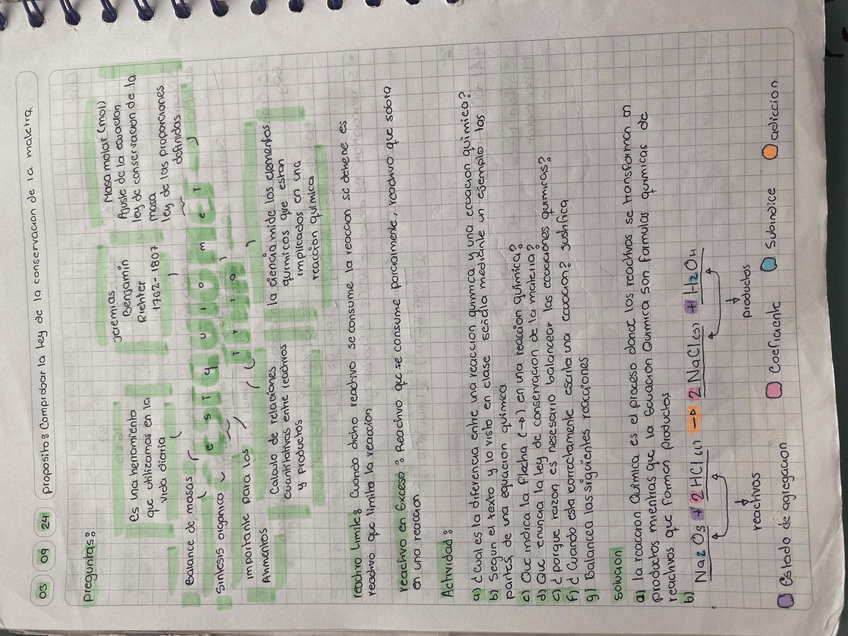 03 09 24 proposito: Comprobar la ley de la conservacion de la materia
preguntas:
Es una herramienta
que utilizamos en la
vida diaria
Jeremias
Benjamin
Richter
1762-1807
Masa molar (mol)
Ajuste de la ecuacion
ley de conservacion de la
masa
ley de las proporciones
definidas
Balance de masas
estequiomet
ria
Sintesis organica
importante para los
Alimentos
Calculo de relaciones
cuantitativas entre reactivos
y productos
la ciencia mide los elementos
quimicos que estan
implicados en una
reaccion quimica
reactivo limite: Cuando dicho reactivo se consume la reaccion se detiene es
reactivo que limita la reaccion
reactivo en Exceso: Reactivo que se consume parcialmente, reactivo que sobra
en una reaccion
Actividad:
a) ¿Cual es la diferencia entre una reaccion quimica y una ecuacion quimica?
b) Segun el texto y lo visto en clase señala mediante un ejemplo las
partes de una equacion quimica
c) Que indica la flecha (→) en una reaccion quimica?
d) Que enuncia la ley de conservacion de la materia?
e) ¿ porque razon es nesesario balancear las ecuaciones quimicas?
f) ¿ Cuando esta correctamente escrita una ecuacion? Justifica
g) Balancea las siguientes reacciones
solucion
a) la reaccion Quimica es el proceso donde los reactivos se transforman en
productos mientras que la Equacion Quimica son formulas quimicas de
reactivos que forman productos
b)
Na2O3 + 2HCl(l) → 2 NaCl(s) + H2OH
reactivos
productos
Estado de agregacion
Coeficiente
Subindice
adiccion